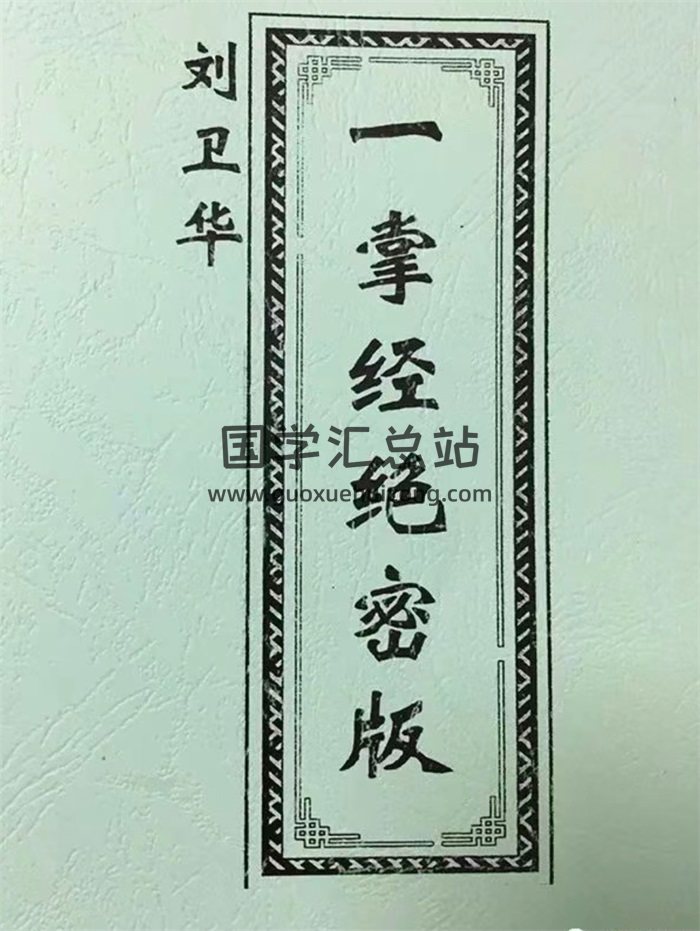 刘卫华
一掌经绝密版
国学汇总站
www.guoxuehuizong.com